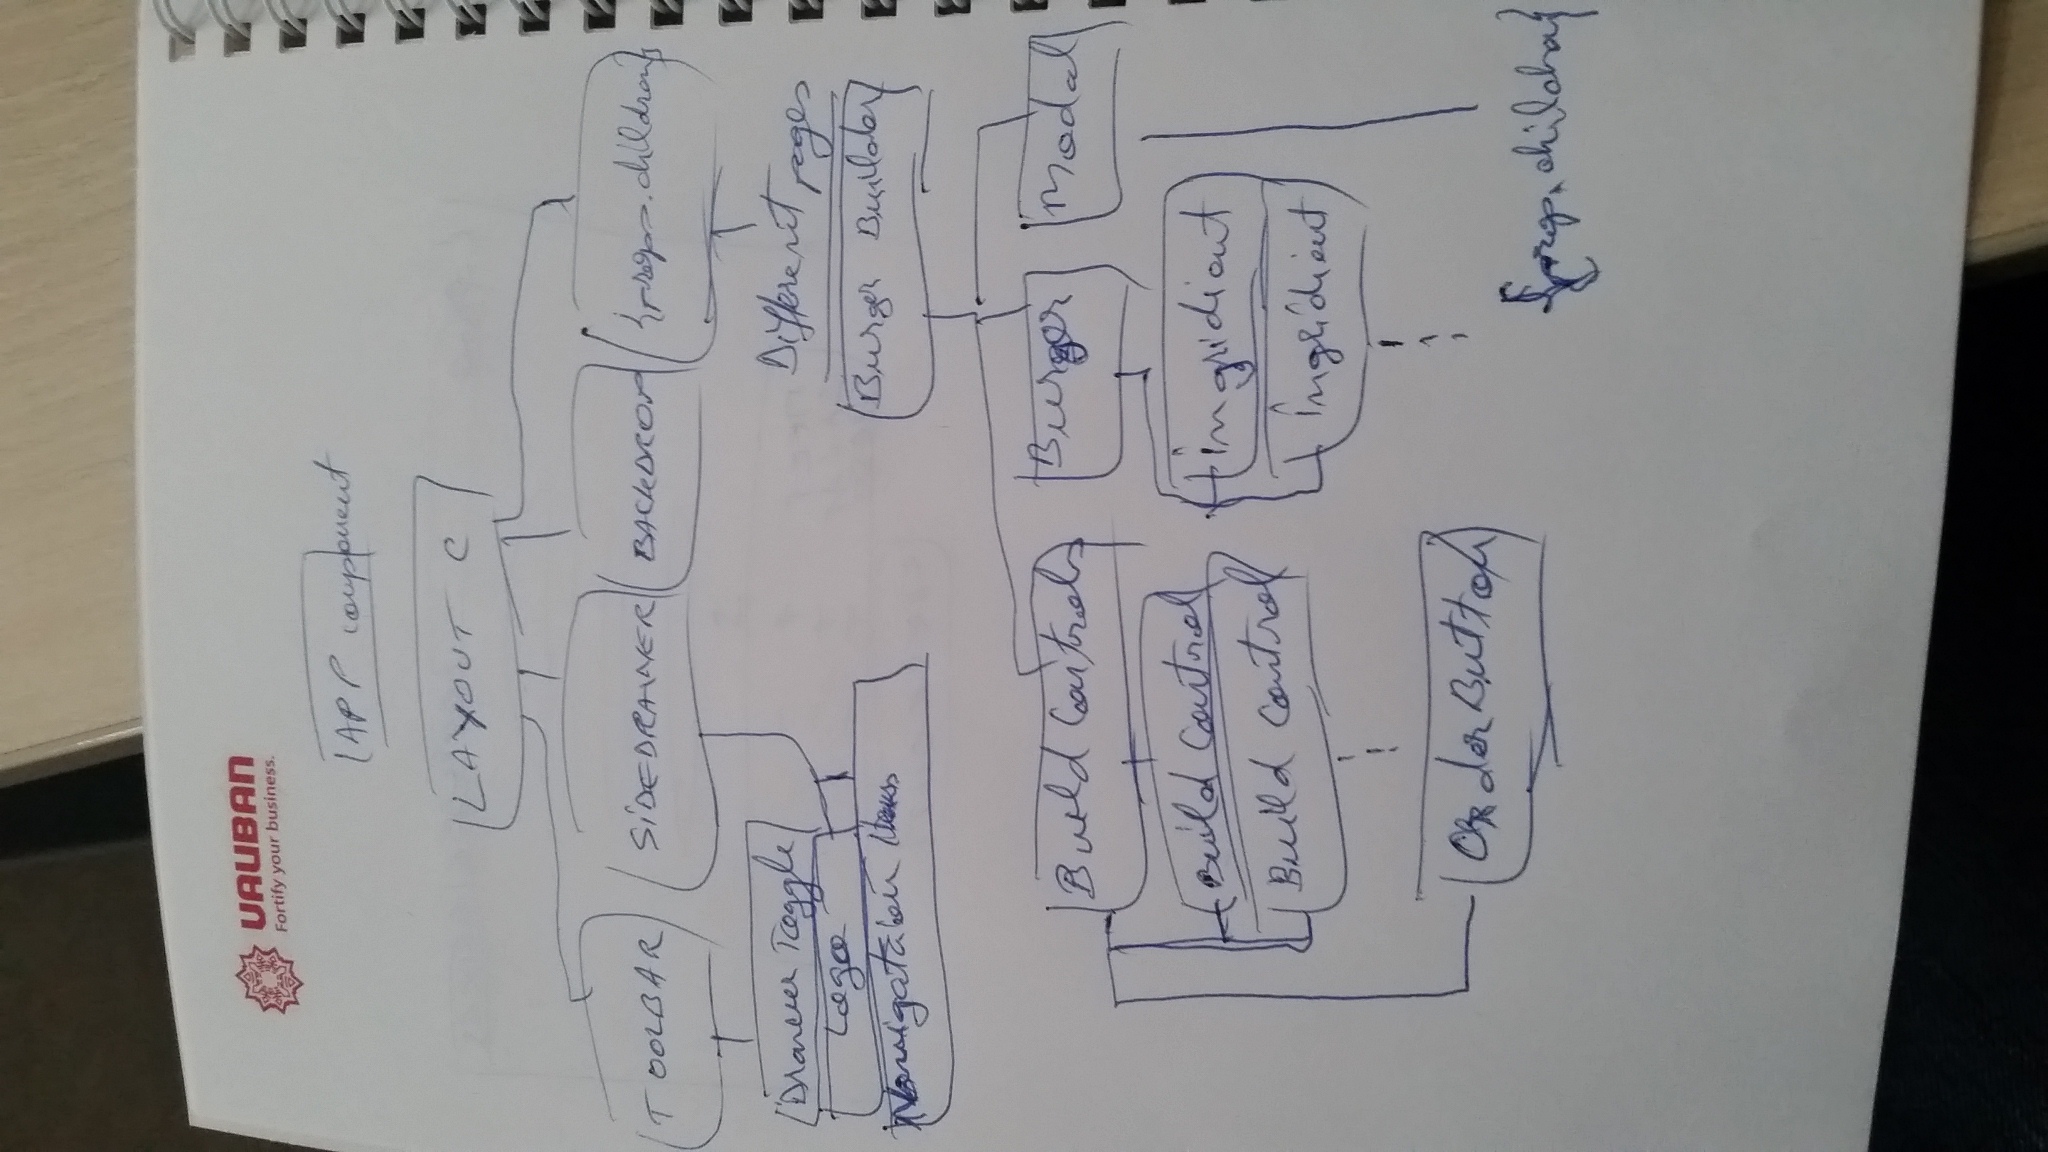 VAUBAN
Fortify your business.
APP component
LAYOUT C
TOOLBAR SIDEDRAWER BACKDROP {props.children}
Drawer Toggle
Logo
Navigation Items
Different pages
Burger Builder
Build Controls Burger Modal
Build Control
Build Control
ingridient
ingridient
Order Button
{props.children}